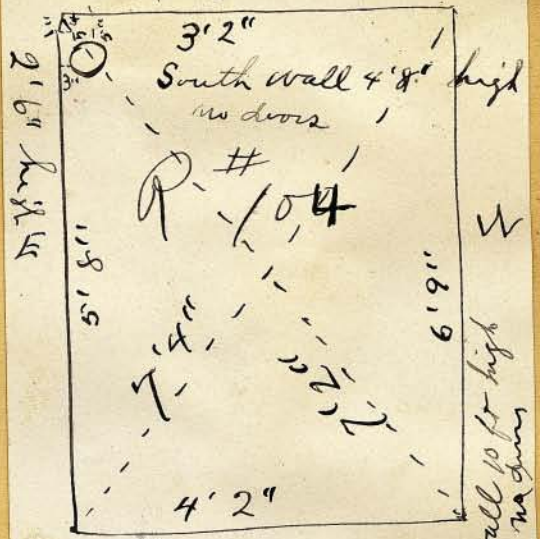 3' 2"
South wall 4' 8" high
no doors
R # 104
2' 6" high W
5' 8"
6' 9"
7' 4"
7' 2"
4' 2"
W
all 10 ft high
no doors